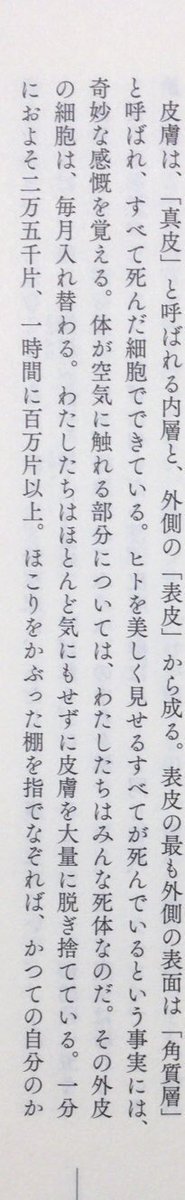 皮膚は、「真皮」と呼ばれる内層と、外側の「表皮」から成る。表皮の最も外側の表面は「角質層」
と呼ばれ、すべて死んだ細胞でできている。ヒトを美しく見せるすべてが死んでいるという事実には、
奇妙な感慨を覚える。体が空気に触れる部分については、わたしたちはみんな死体なのだ。その外皮
の細胞は、毎月入れ替わる。わたしたちはほとんど気にもせずに皮膚を大量に脱ぎ捨てている。一分
におよそ二万五千片、一時間に百万片以上。ほこりをかぶった棚を指でなぞれば、かつての自分のか